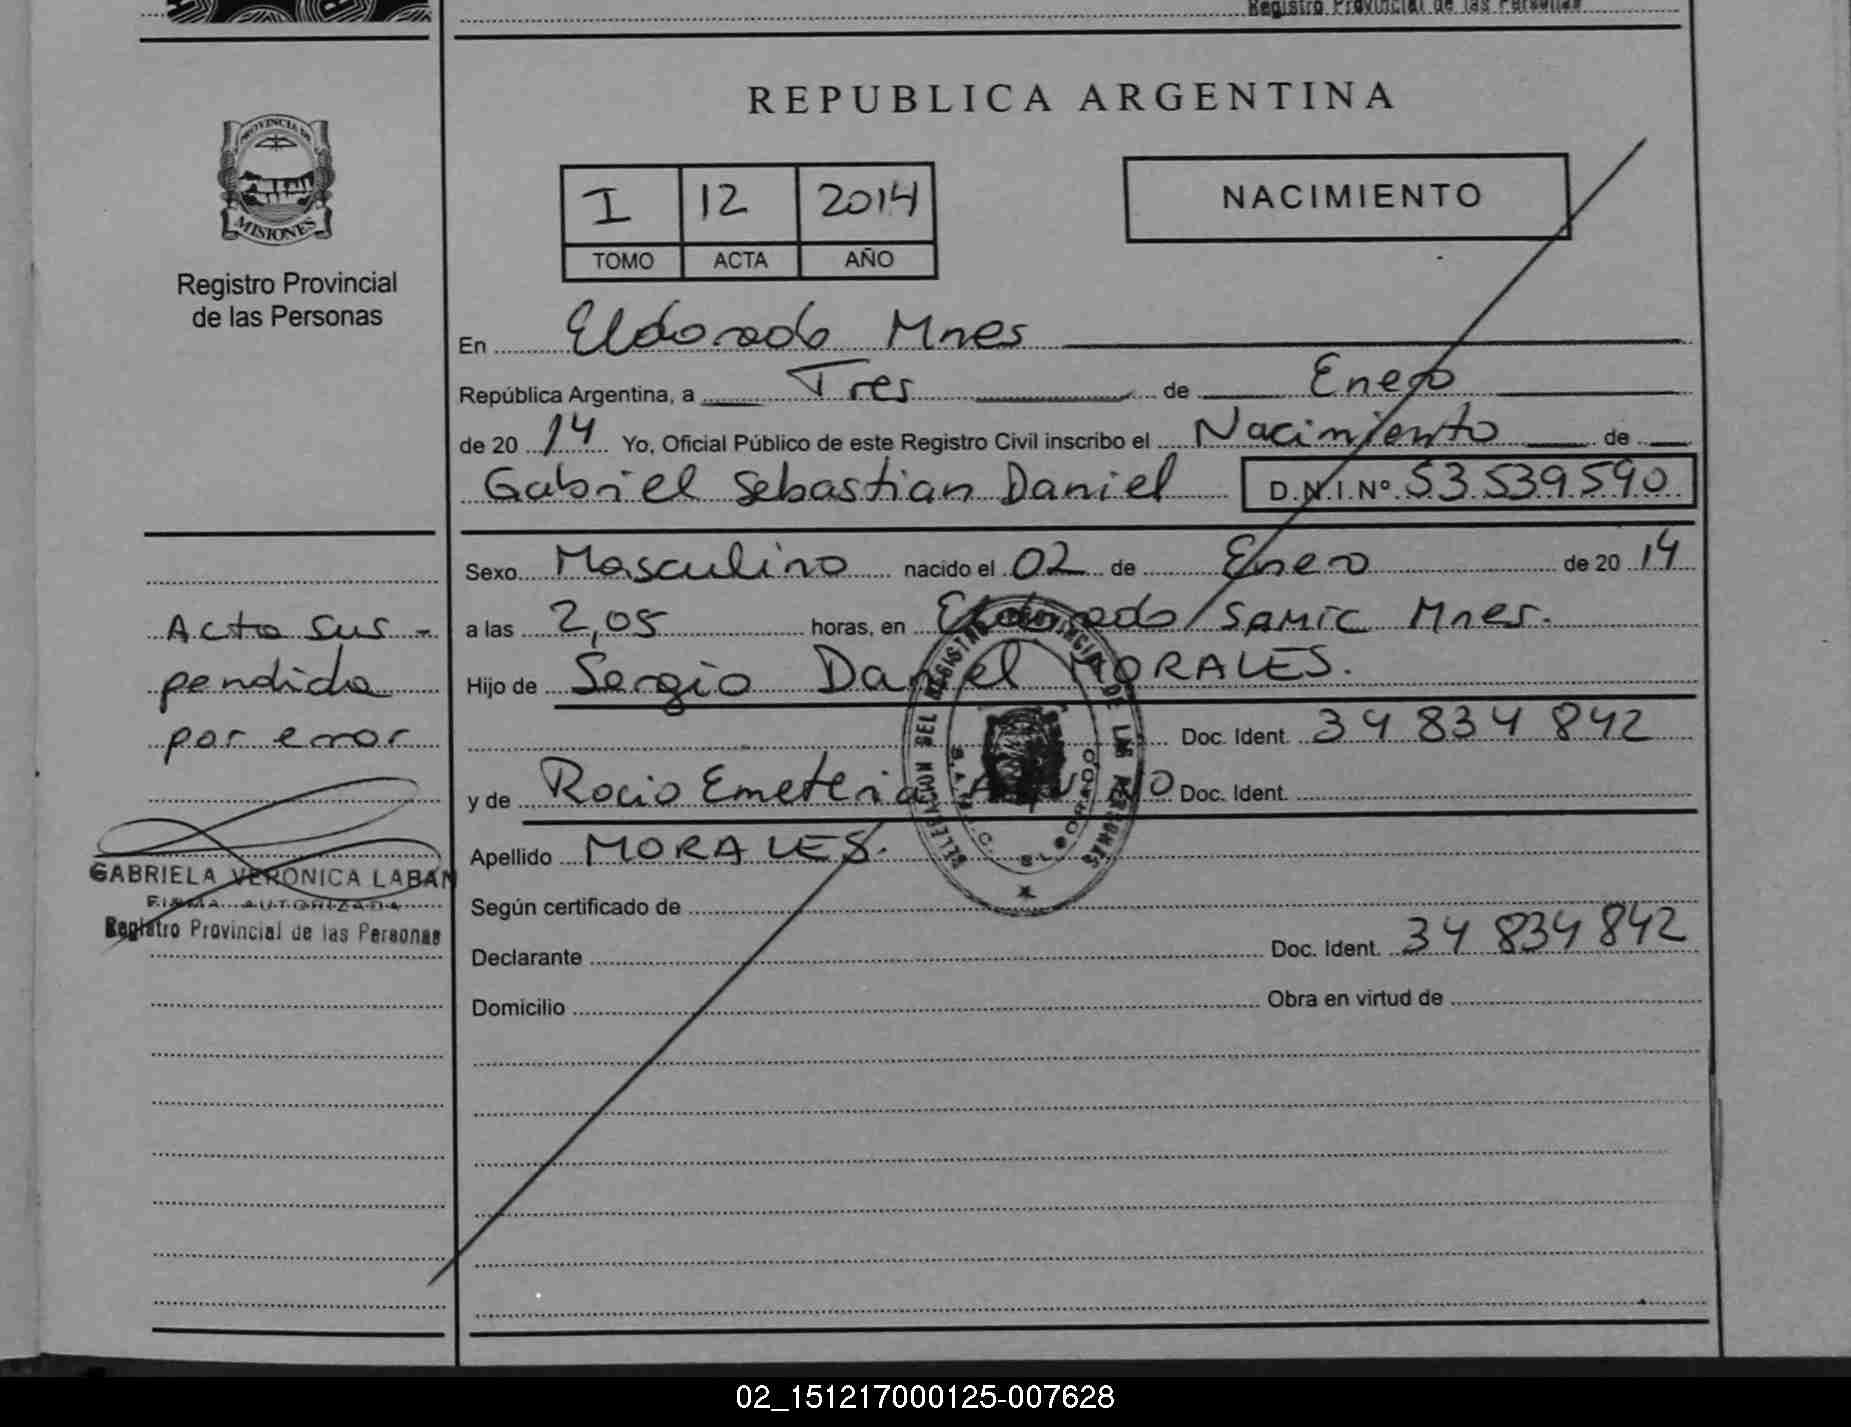 Registro Provincial de las Personas
REPUBLICA ARGENTINA
PROVINCIA DE
MISIONES
Registro Provincial
de las Personas
I 12 2014
TOMO ACTA AÑO
NACIMIENTO
En Eldorado Mnes
República Argentina, a Tres de Enero
de 20 14 Yo, Oficial Público de este Registro Civil inscribo el Nacimiento de
Gabriel Sebastian Daniel D.N.I.Nº 53.539.590
Sexo Masculino nacido el 02 de Enero de 20 14
a las 2,05 horas, en Eldorado/SAMIC Mnes.
Hijo de Sergio Daniel MORALES.
Doc. Ident. 34 834 842
y de Rocio Emeteria Doc. Ident.
Apellido MORALES.
Según certificado de
Declarante Doc. Ident. 34 834 842
Domicilio Obra en virtud de
Acta sus-
pendida
por error
GABRIELA VERONICA LABAN
FIRMA AUTORIZADA
Registro Provincial de las Personas
DEL REGISTRO PROVINCIAL DE LAS PERSONAS
ELDORADO
02_151217000125-007628